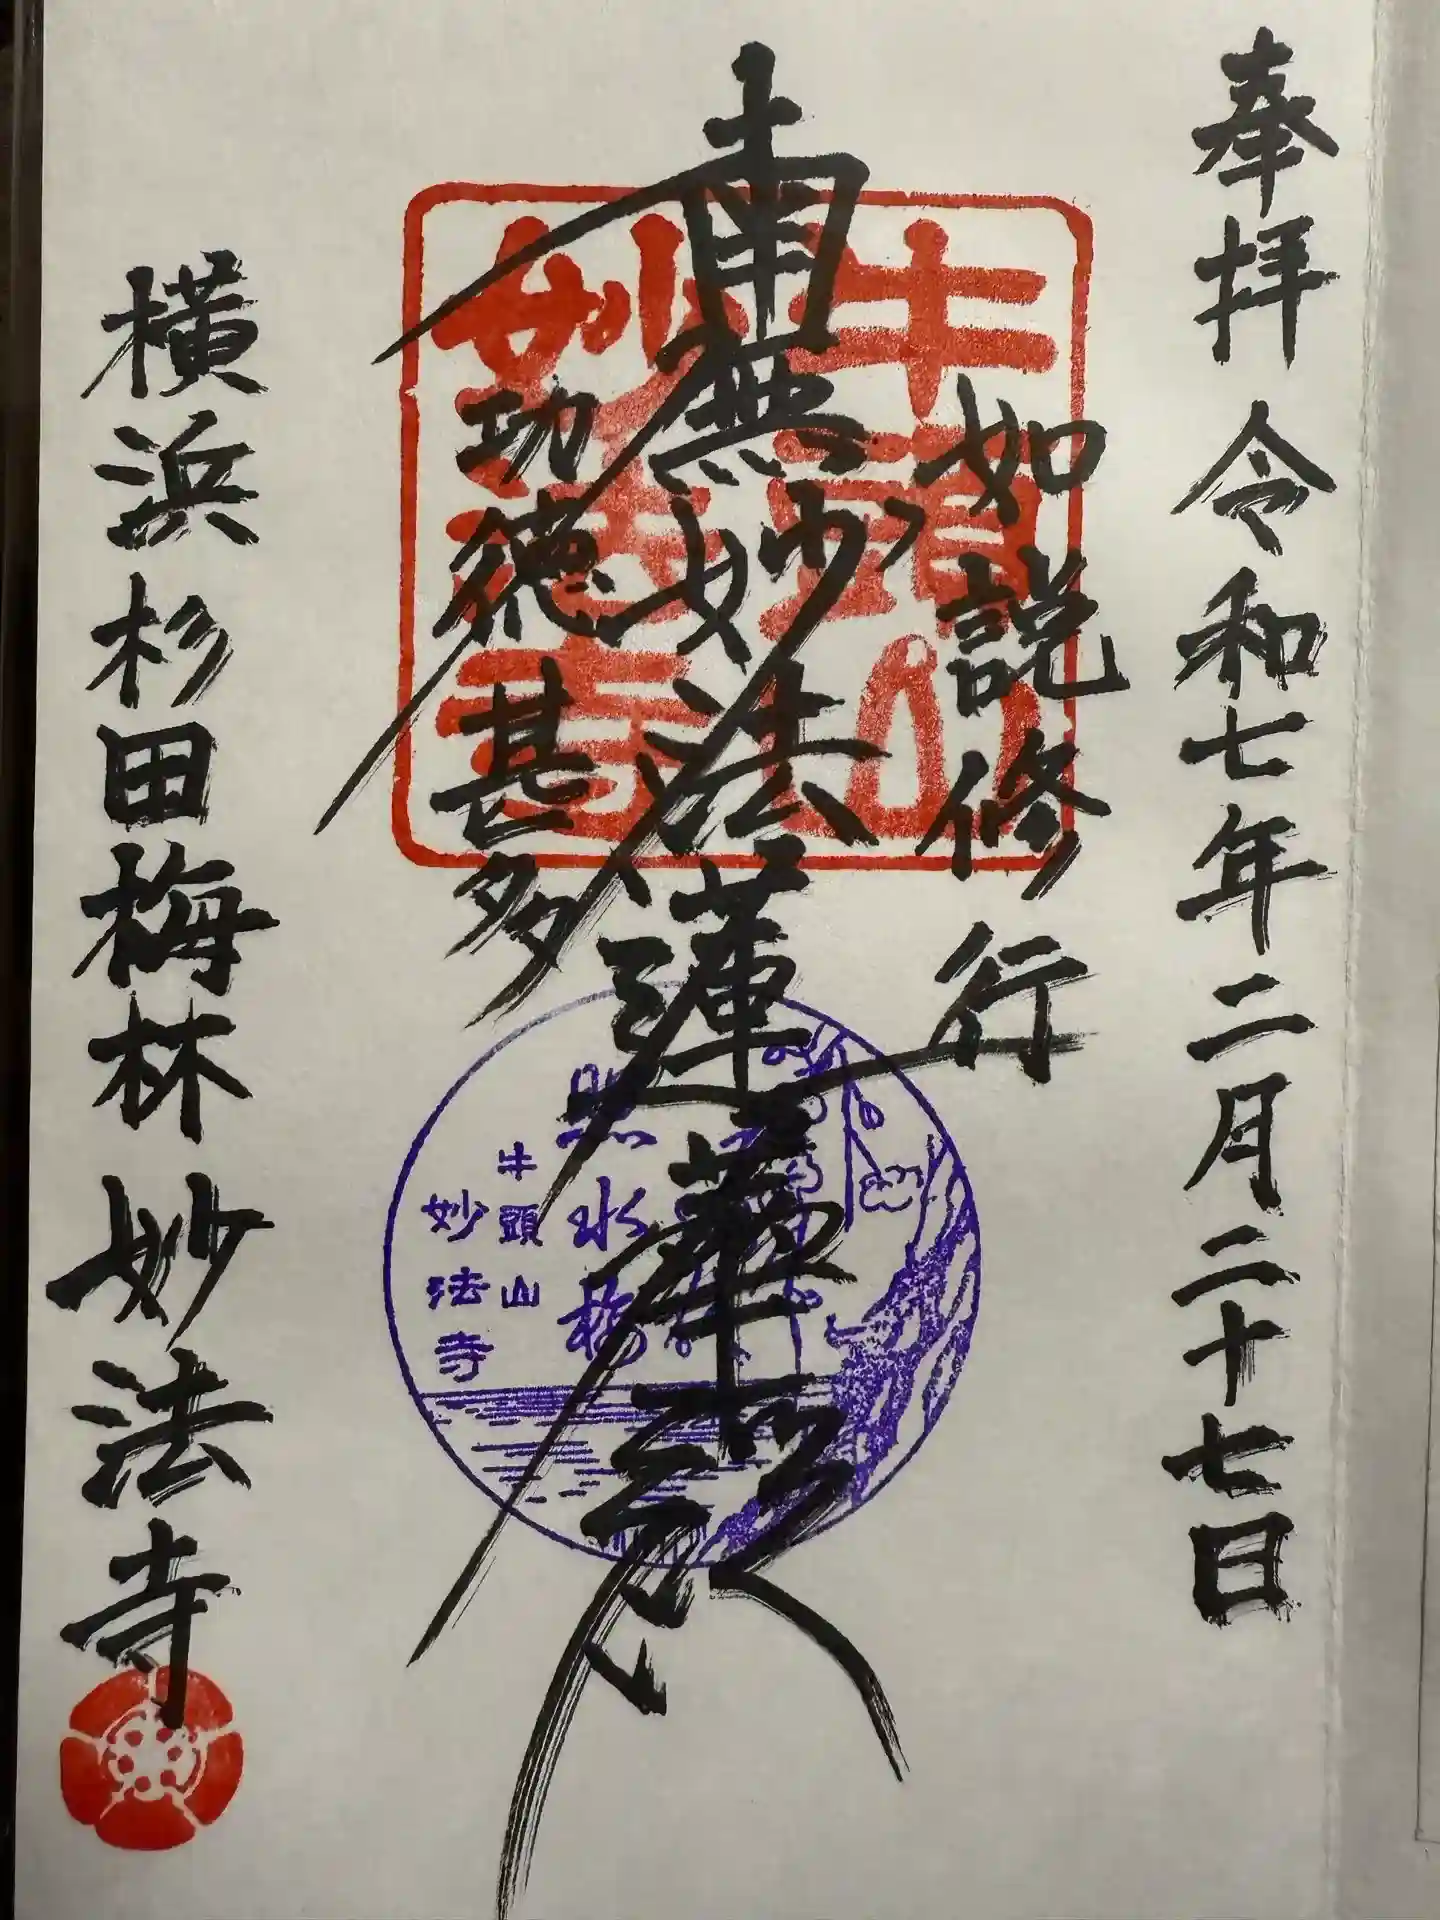 奉拝 令和七年二月二十七日
如説修行
南無妙法蓮華経
功徳甚多
横浜杉田梅林 妙法寺
牛頭山
妙法寺
照水梅
牛頭山
妙法寺